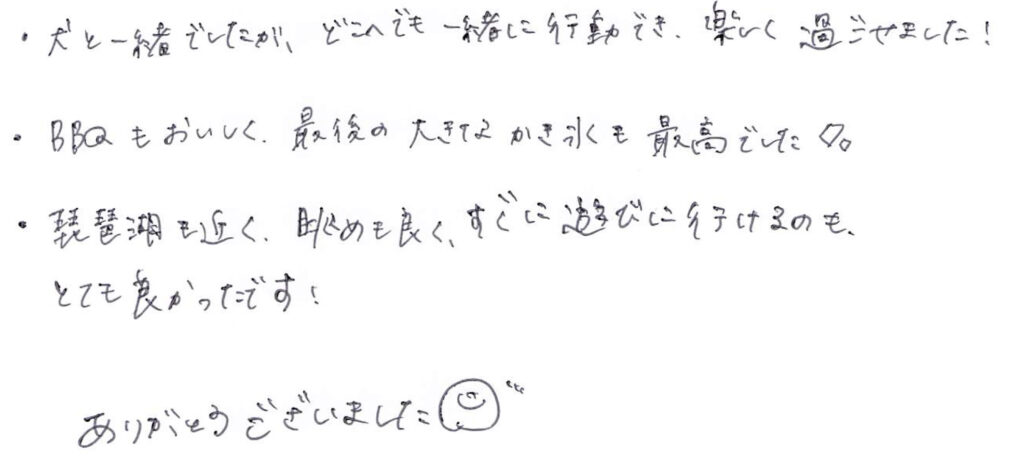 ・犬と一緒でしたが、どこへでも一緒に行動でき、楽しく過ごせました！
・BBQもおいしく、最後の大きなかき氷も最高でした♡。
・琵琶湖も近く、眺めも良く、すぐに遊びに行けるのも、
とても良かったです！
ありがとうございました